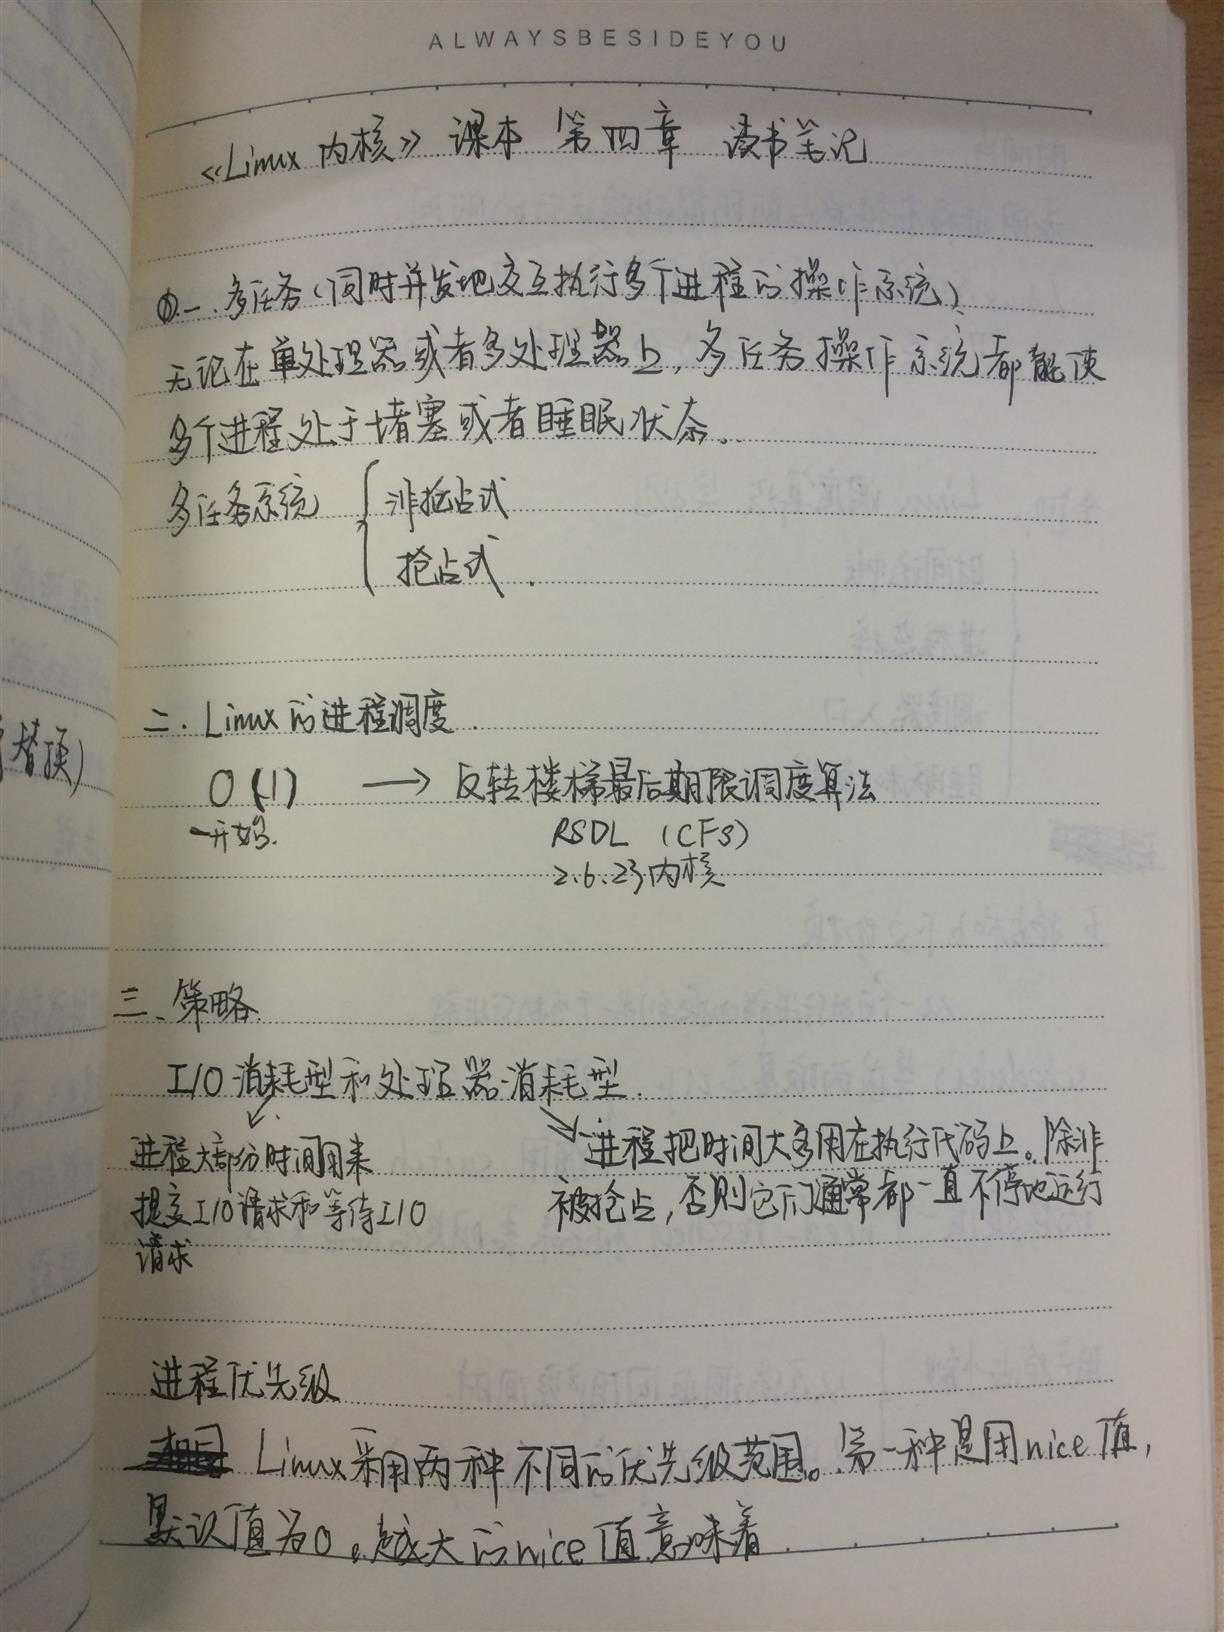 ALWAYSBESIDEYOU
《Linux 内核》 课本 第四章 读书笔记
一.多任务(同时并发地交互执行多个进程的操作系统)
无论在单处理器或者多处理器上,多任务操作系统都能使
多个进程处于堵塞或者睡眠状态。
多任务系统 { 非抢占式
抢占式.
二.Linux的进程调度.
O(1) → 反转楼梯最后期限调度算法
一开始. RSDL (CFS)
2.6.23内核
三、策略.
I/O消耗型和处理器消耗型.
进程大部分时间用来
提交I/O请求和等待I/O
请求
进程把时间大多用在执行代码上。除非
被抢占,否则它们通常都一直不停地运行
进程优先级
Linux采用两种不同的优先级范围。第一种是用nice值,
默认值为0。越大的nice值意味着
替换)